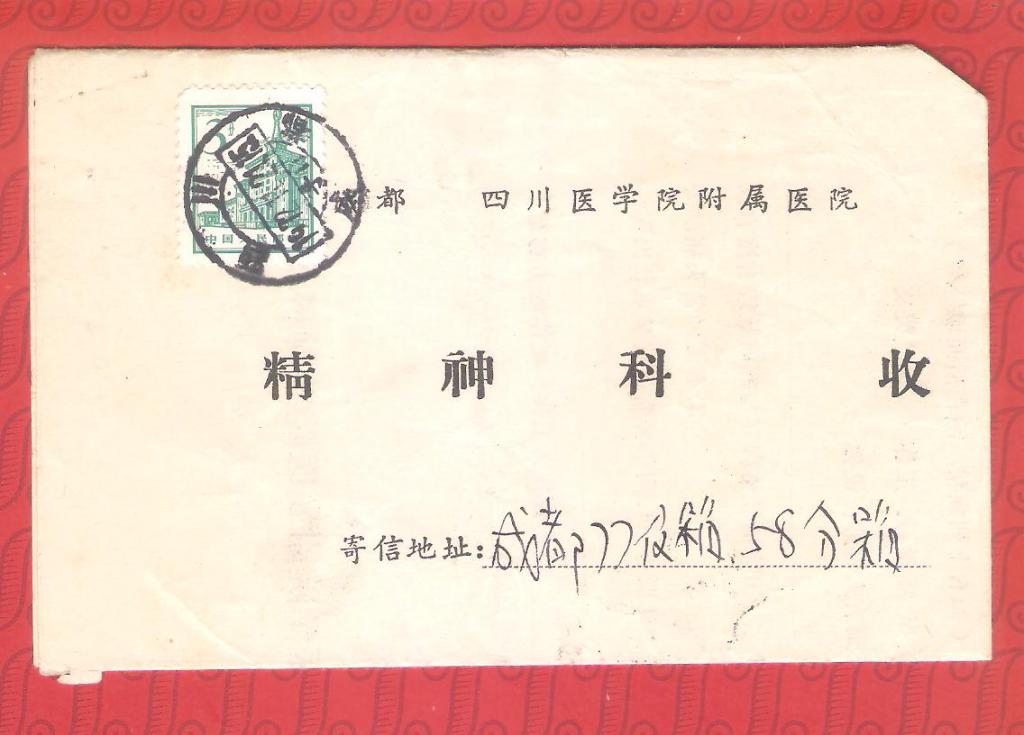 中国人民邮政
成都 四川医学院附属医院
精神科 收
寄信地址:成都77信箱.58分箱